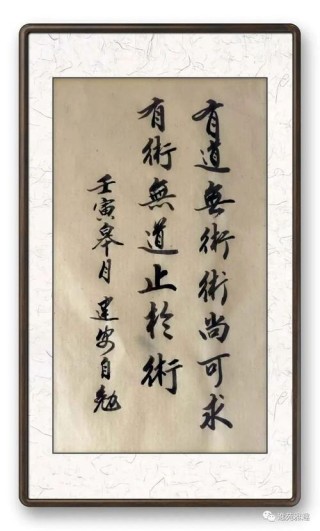 有道無術術尚可求
有術無道止於術
壬寅皋月建安自勉